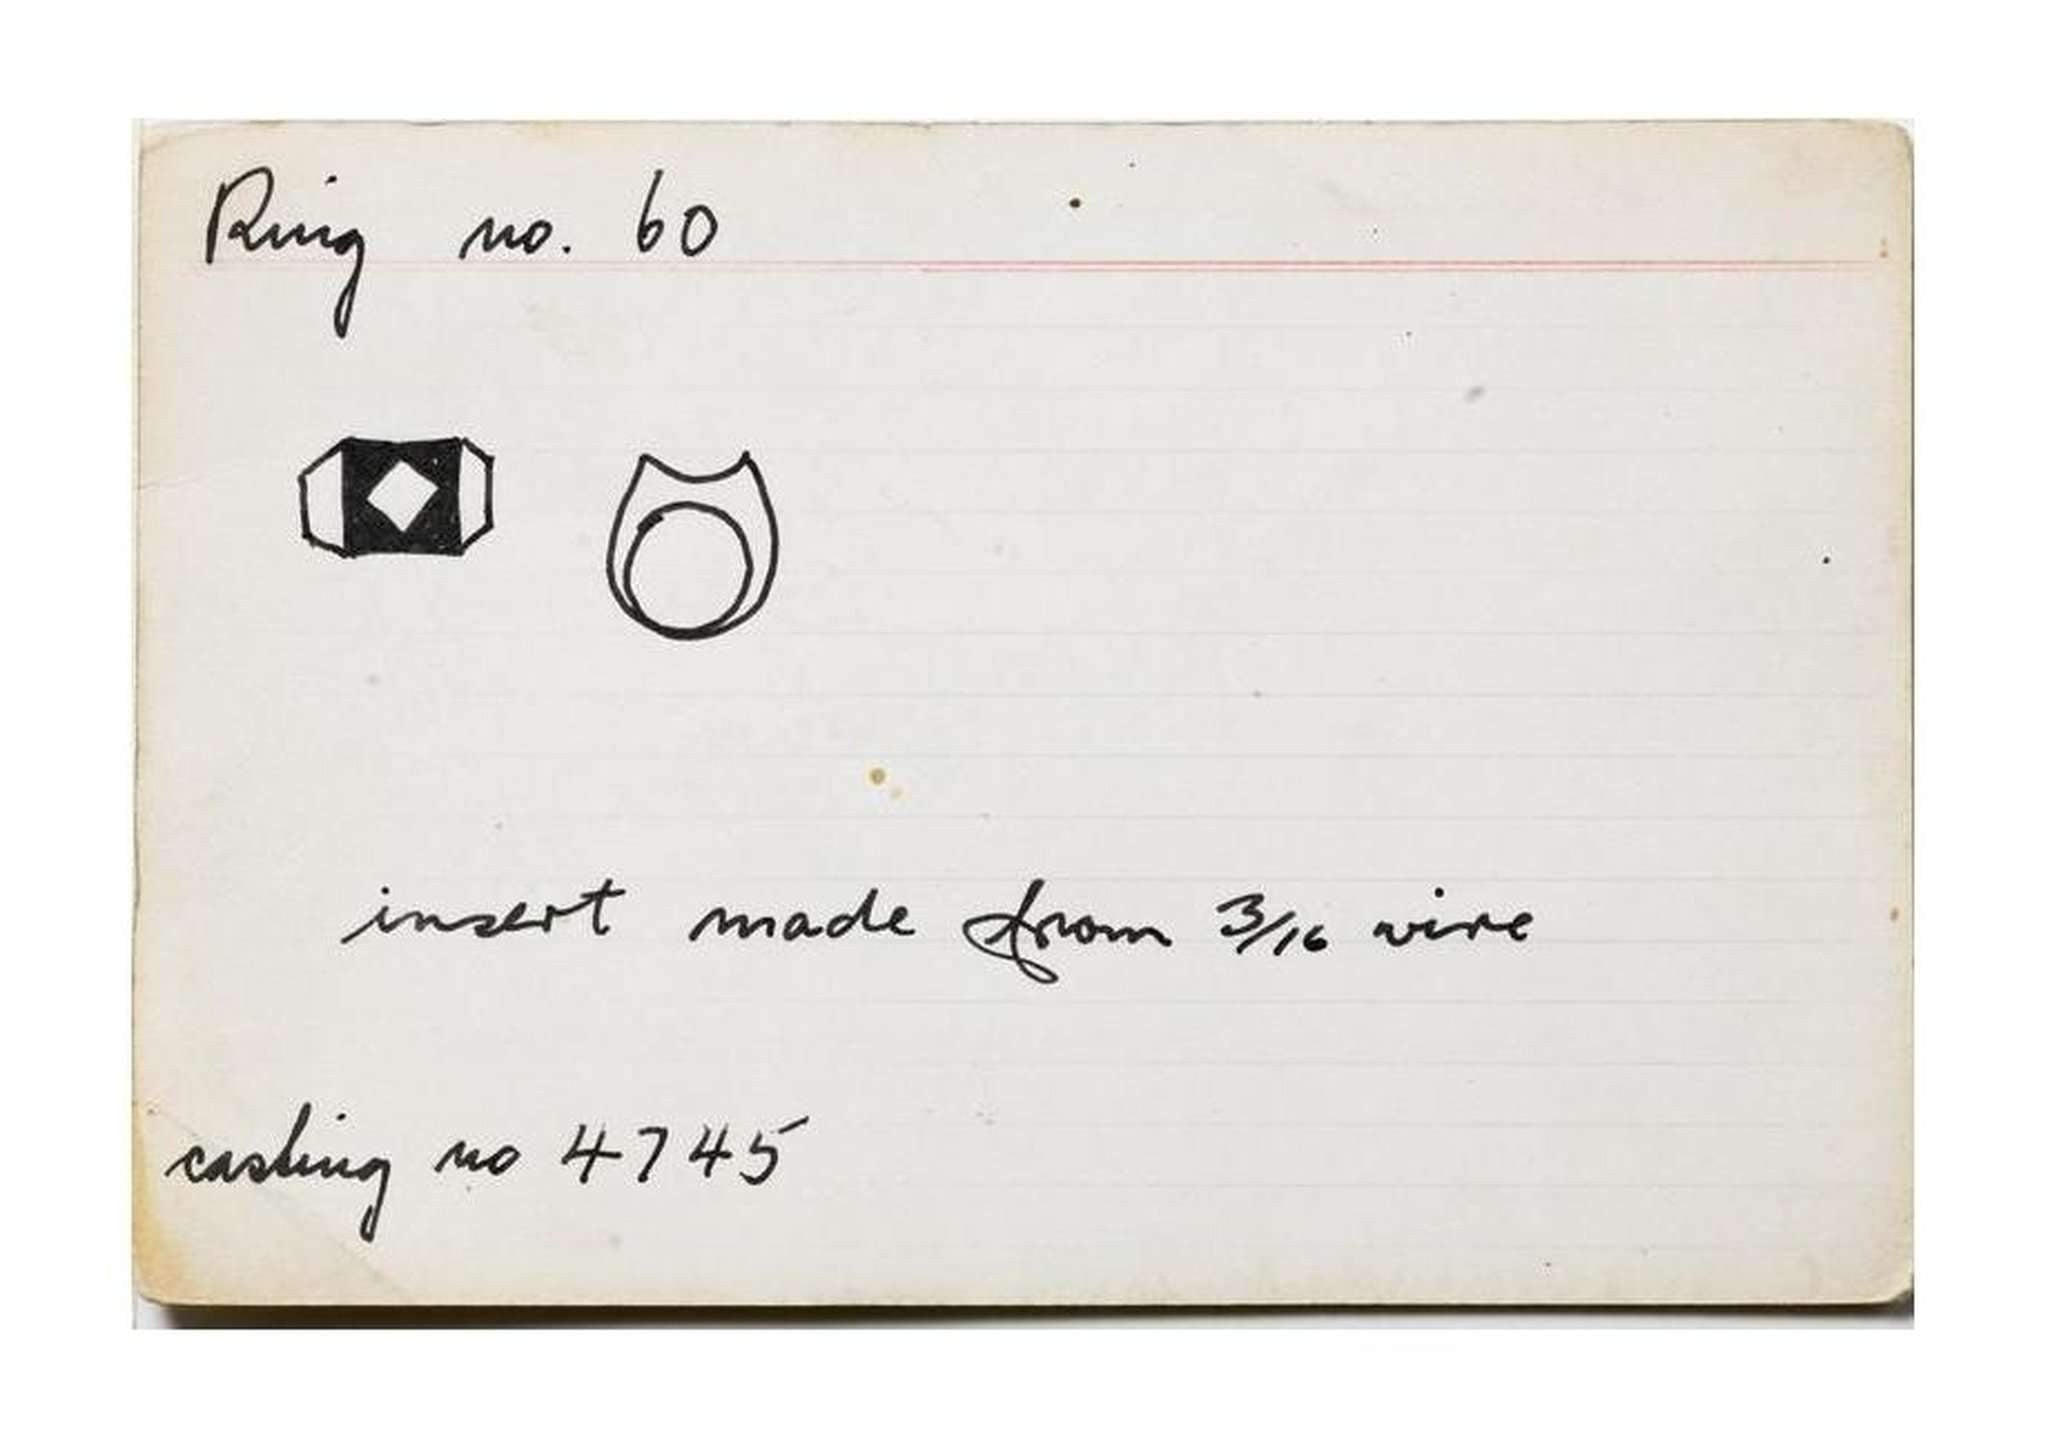 Ring no. 60
insert made from 3/16 wire
casting no 4745